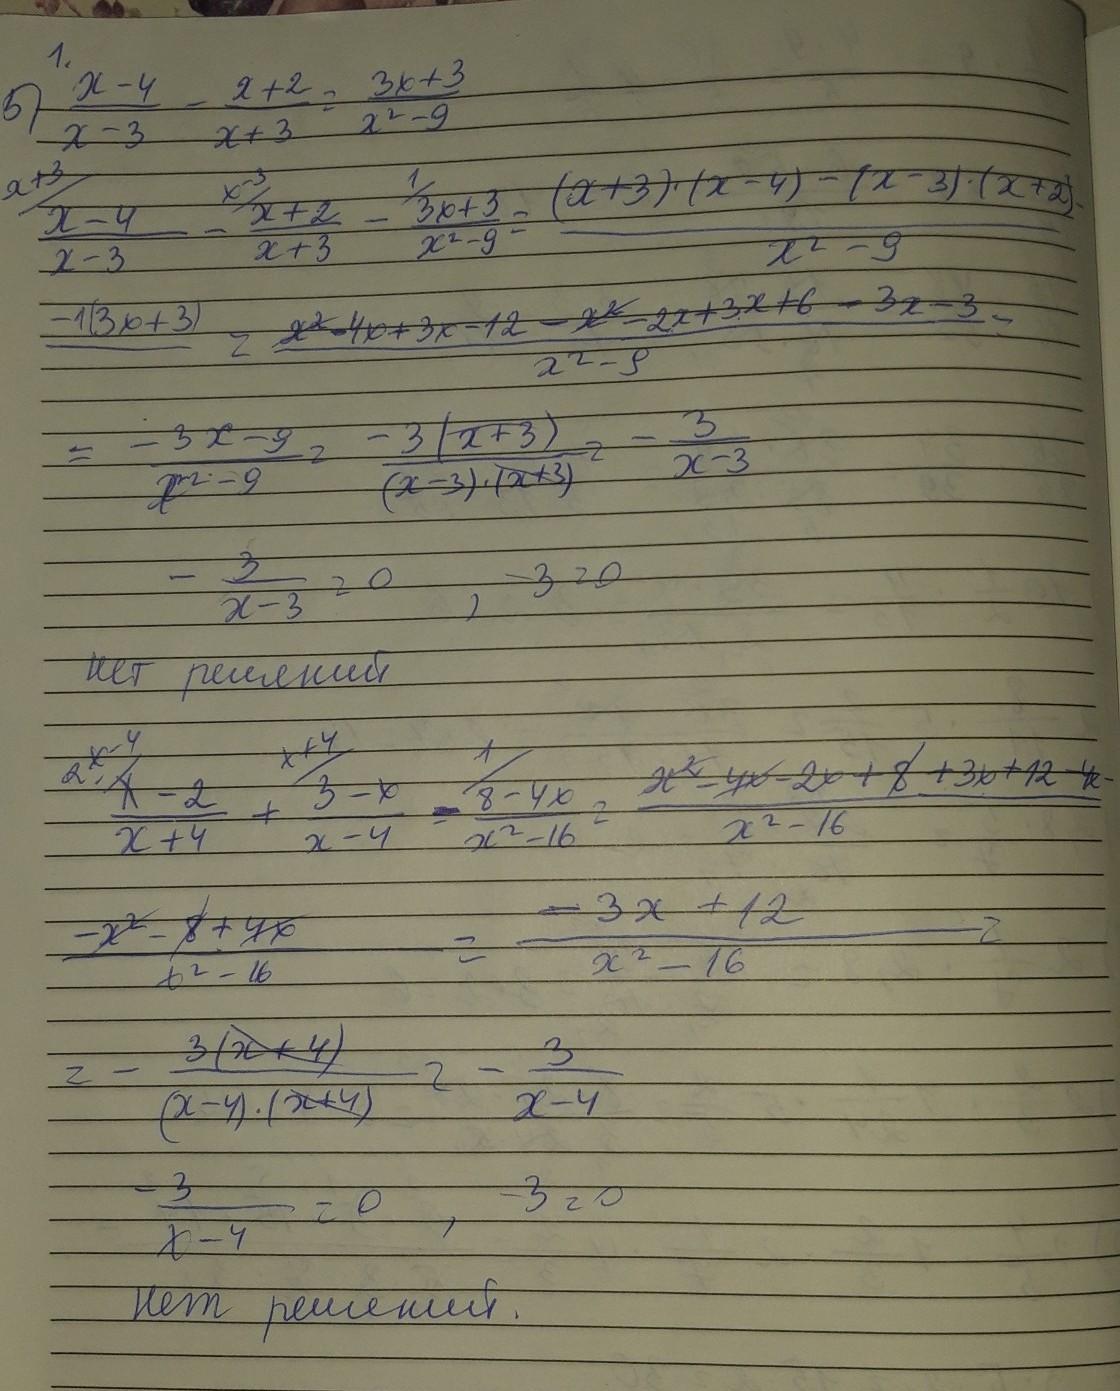 1.
б) x-4/x-3 - x+2/x+3 = 3x+3/x²-9
x+3/ x-4/x-3 - x-3/ x+2/x+3 - 1/ 3x+3/x²-9 = (x+3)·(x-4)-(x-3)·(x+2)-/x²-9
-1(3x+3) = x²-4x+3x-12-x²-2x+3x+6-3x-3/x²-9 =
= -3x-9/x²-9 = -3(x+3)/(x-3)·(x+3) = -3/x-3
-3/x-3 = 0 , -3=0
Нет решений
2. x-4/ x-2/x+4 + x+4/ 3-x/x-4 - 1/ 8-4x/x²-16 = x²-4x-2x+8+3x+12-4x-/x²-16
-x²-8+4x/x²-16 = -3x+12/x²-16 =
= -3(x+4)/(x-4)·(x+4) = -3/x-4
-3/x-4 = 0 , -3=0
Нет решений.